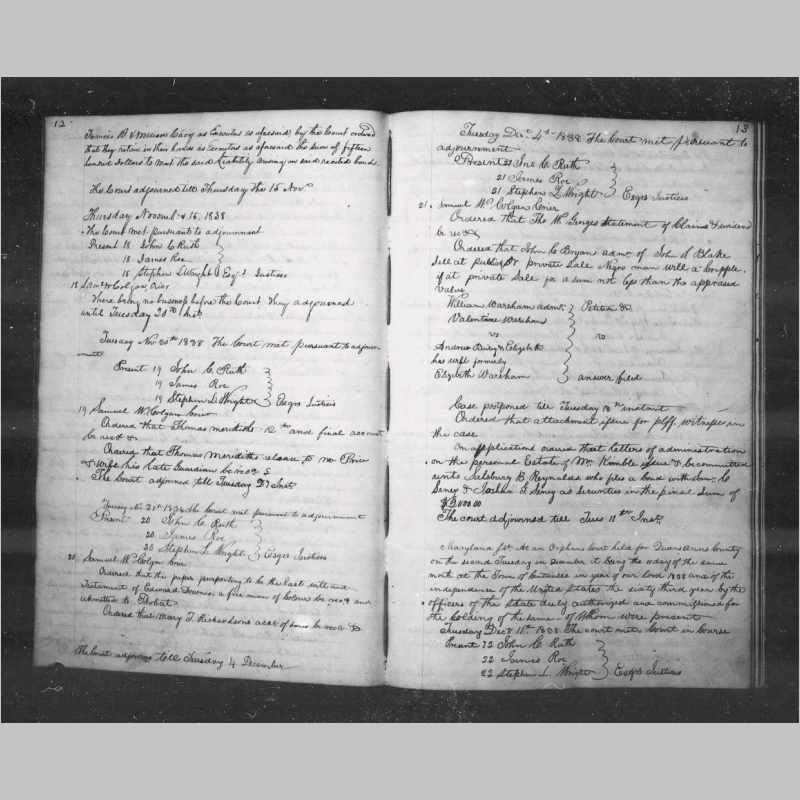 12
Francis B & William Carey as Executors as aforesaid, by the Court ordered
that they retain in their hands as Executors as aforesaid the sum of fifteen
hundred dollars to meet the said liability among in said recited bond.
The Court adjourned till Thursday the 15 Novr
Thursday Novemb 15, 1838
The Court met pursuant to adjournment
Present 18 John C Ruth
18 James Roe
18 Stephen L Wright Esqrs Justices
18 Saml W Colgan, Crier
There being no business before the Court they adjourned
until Tuesday 20th Inst
Tuesday Nov 20th 1838 The Court met pursuant to adjourn
ment
Present 19 John C. Ruth
19 James Roe
19 Stephen L. Wright Esqrs Justices
19 Samuel W Colgan Crier
Ordered that Thomas 12th and final account
be recd &
Ordered that Thomas Merediths release to Wm Price
& wife his late Guardian be recd
The Court adjourned till Tuesday 27 Inst
Tuesday Nov 27th 1838 The Court met pursuant to adjournment
Present 20 John C Ruth
20 James Roe
20 Stephen L Wright Esqrs Justices
20 Samuel W Colgan Crier
Ordered that the paper purporting to be the last will and
Testament of Edward a free man of Colour be recd and
admitted to Probat
Ordered that Mary T. Richardsons acct of be recd &
The Court adjourns till Tuesday 4 December
13
Tuesday Decr 4th 1838 The Court met pursuant to
adjournment
Present 21 Jno C Ruth
21 James Roe
21 Stephen L Wright Esqrs Justices
21 Samuel W Colgan Crier
Ordered that The W statement of Claims & dividend
be recd &
Ordered that John C Bryan admr of John S Blake
sell at public or private sale Negro man will a
if at private sale for a sum not less than the appraised
value
William Wareham admr Petition &c
Valentine Wareham
vs
Andrew & Elizabeth
his wife formerly
Elizabeth Wareham answer filed
Case postponed till Tuesday 18th instant
Ordered that attachment issue for plff. witnesses in
the case
On application ordered that letters of administration
on the personal Estate of Wm Kimble issue & be committed
unto Salsbury B Reynolds who files a bond with Saml C
Seney & Joshua Seney as securities in the penal sum of
The court adjourned till Tues 11th Inst.
Maryland Sct At an Orphans Court held for Queen Anns County
on the second Tuesday in December it being the day of the same
month at the Town of Centreville in year of our Lord 1838 and of the
independence of the United States the sixty third year by the
officers of the State duly authorized and commissioned for
the holding of the same of Whom were present
Tuesday Decr 11th 1838 The court met Court in Course
Present 22 John C. Ruth
22 James Roe
22 Stephen L. Wright Esqrs Justices